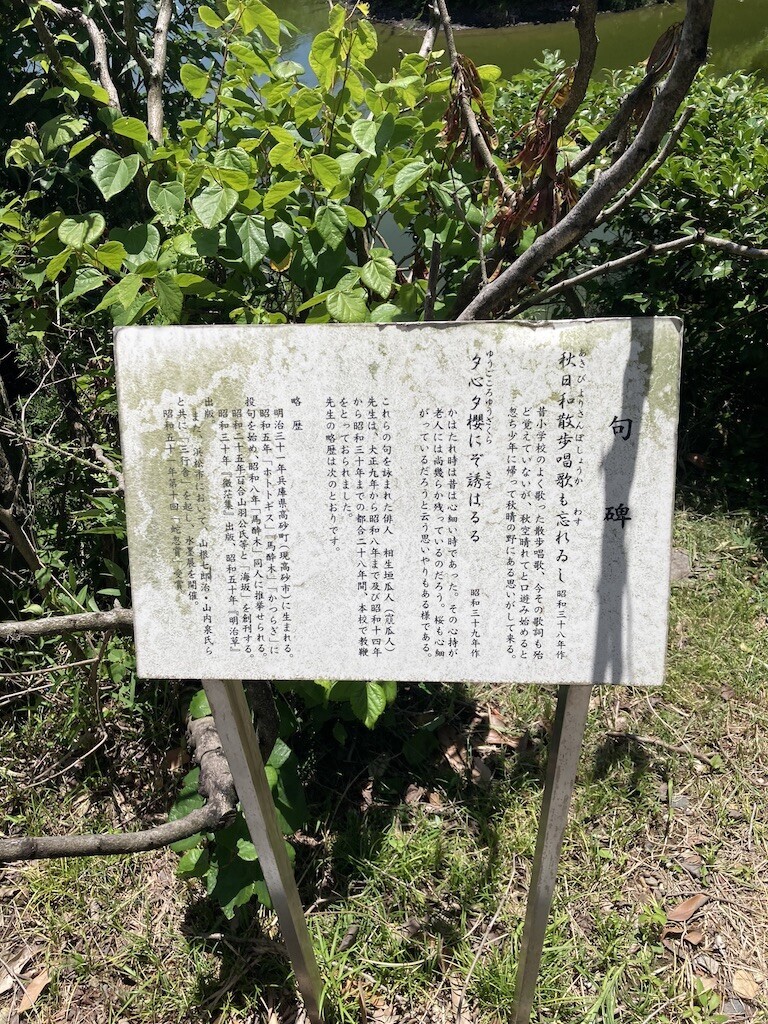 句碑
あきびよりさんぽしょうか　わす
秋日和散歩唱歌も忘れゐし　昭和三十八年作
昔小学校のよく歌った散歩唱歌、今その歌詞も殆
ど覚えていないが、秋空晴れてと口遊み始めると
忽ち少年に帰って秋晴の野にある思いがして来る。
ゆうごころゆうざくら　さそ
夕心夕櫻にぞ誘はるる　昭和三十九年作
かはたれ時は昔は心細い時であった。その心持が
老人には尚幾らか残っているのだろう。桜も心細
がっているだろうと云う思いやりもある様である。
これらの句を詠まれた俳人　相生垣瓜人（瓜人）
先生は、大正九年から昭和八年まで及び昭和十四年
から昭和三十年までの都合二十八年間、本校で教鞭
をとっておられました。
先生の略歴は次のとおりです。
略歴
明治三十一年兵庫県高砂町（現高砂市）に生まれる。
昭和五年「ホトトギス」「馬酔木」「かつらぎ」に
投句を始め、昭和八年「馬酔木」同人に推挙せられる。
昭和二十五年百合山羽公氏等と「海坂」を創刊する。
昭和三十年『微茫集』出版、昭和五十年『明治草』
出版。
また、浜松市において、山根七郎治・山内泉氏ら
と共に「三行」を起し、墨展を開催。
昭和五十一年第十回「蛇笏賞」受賞。